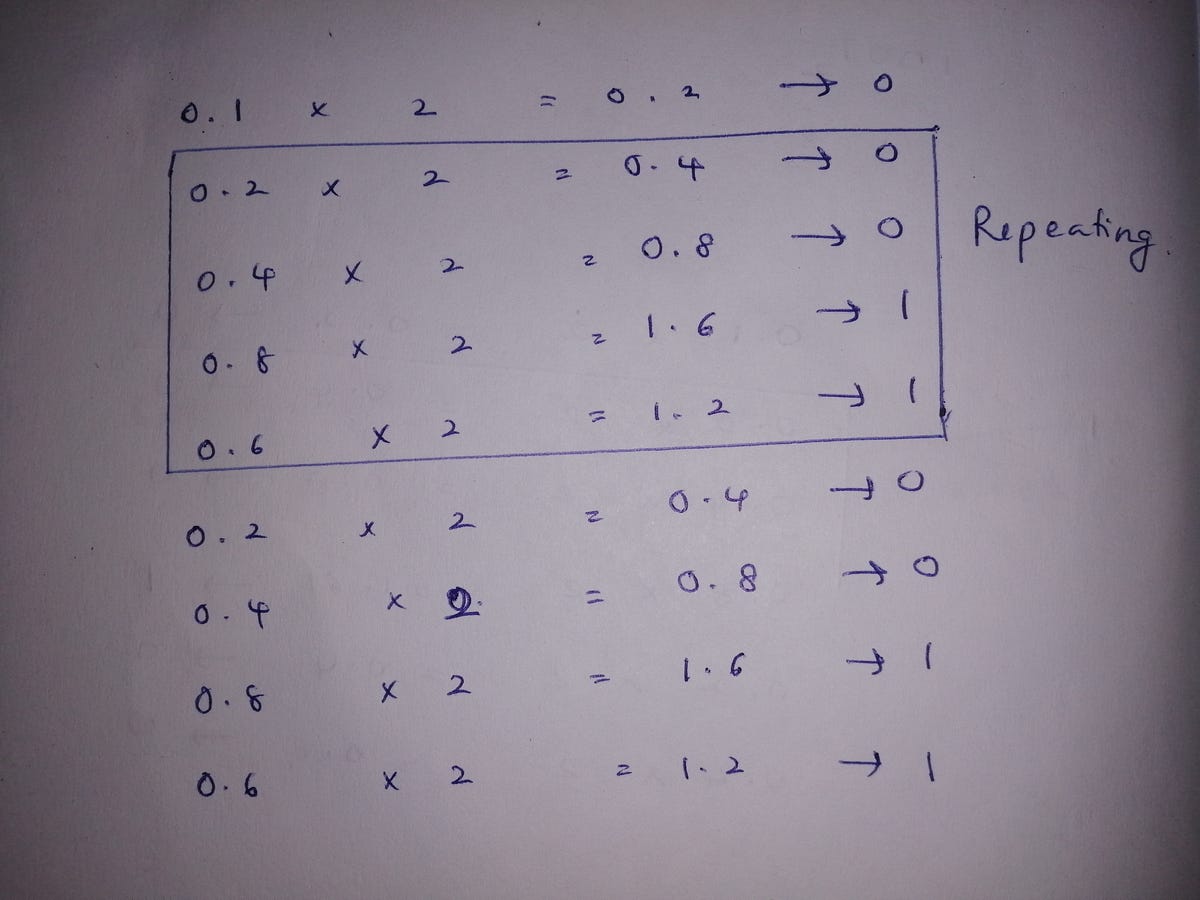 0.1 x 2 = 0.2 → 0
0.2 x 2 = 0.4 → 0
0.4 x 2 = 0.8 → 0
Repeating.
0.8 x 2 = 1.6 → 1
0.6 x 2 = 1.2 → 1
0.2 x 2 = 0.4 → 0
0.4 x 2 = 0.8 → 0
0.8 x 2 = 1.6 → 1
0.6 x 2 = 1.2 → 1